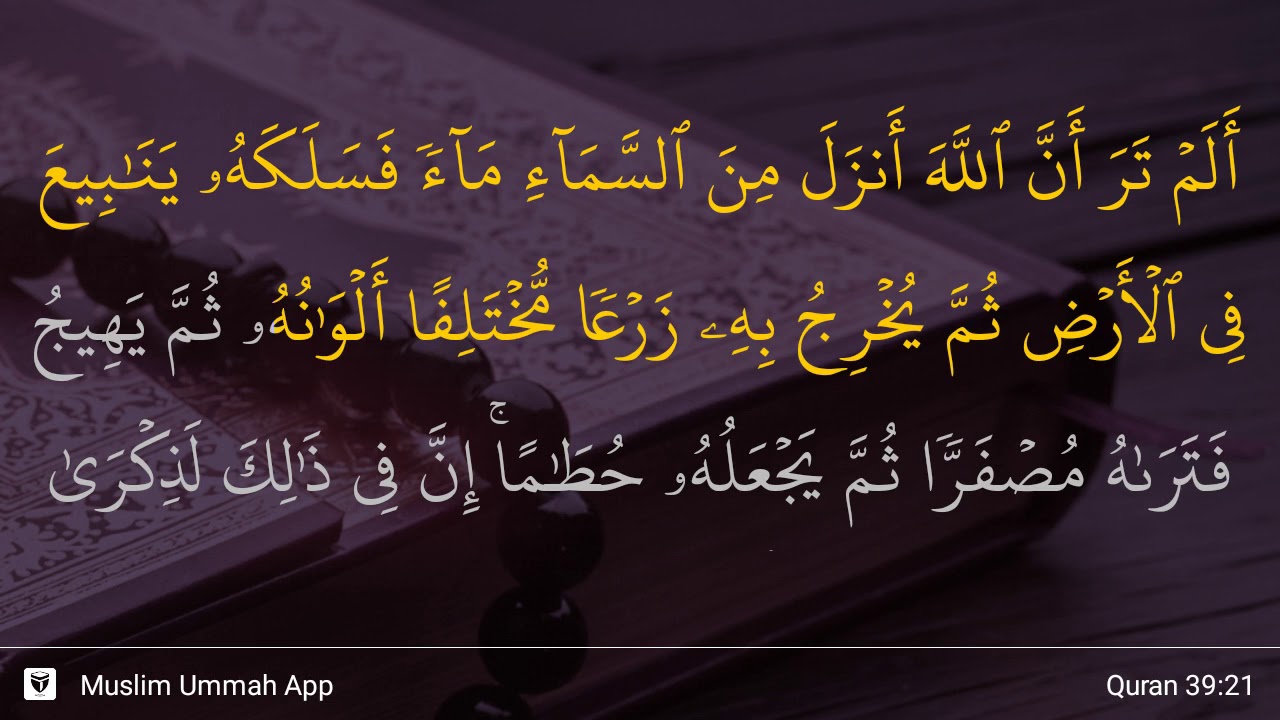 أَلَمۡ تَرَ أَنَّ ٱللَّهَ أَنزَلَ مِنَ ٱلسَّمَآءِ مَآءٗ فَسَلَكَهُۥ يَنَٰبِيعَ
فِي ٱلۡأَرۡضِ ثُمَّ يُخۡرِجُ بِهِۦ زَرۡعٗا مُّخۡتَلِفًا أَلۡوَٰنُهُۥ ثُمَّ يَهِيجُ
فَتَرَىٰهُ مُصۡفَرّٗا ثُمَّ يَجۡعَلُهُۥ حُطَٰمًاۚ إِنَّ فِي ذَٰلِكَ لَذِكۡرَىٰ
Muslim Ummah App
Quran 39:21